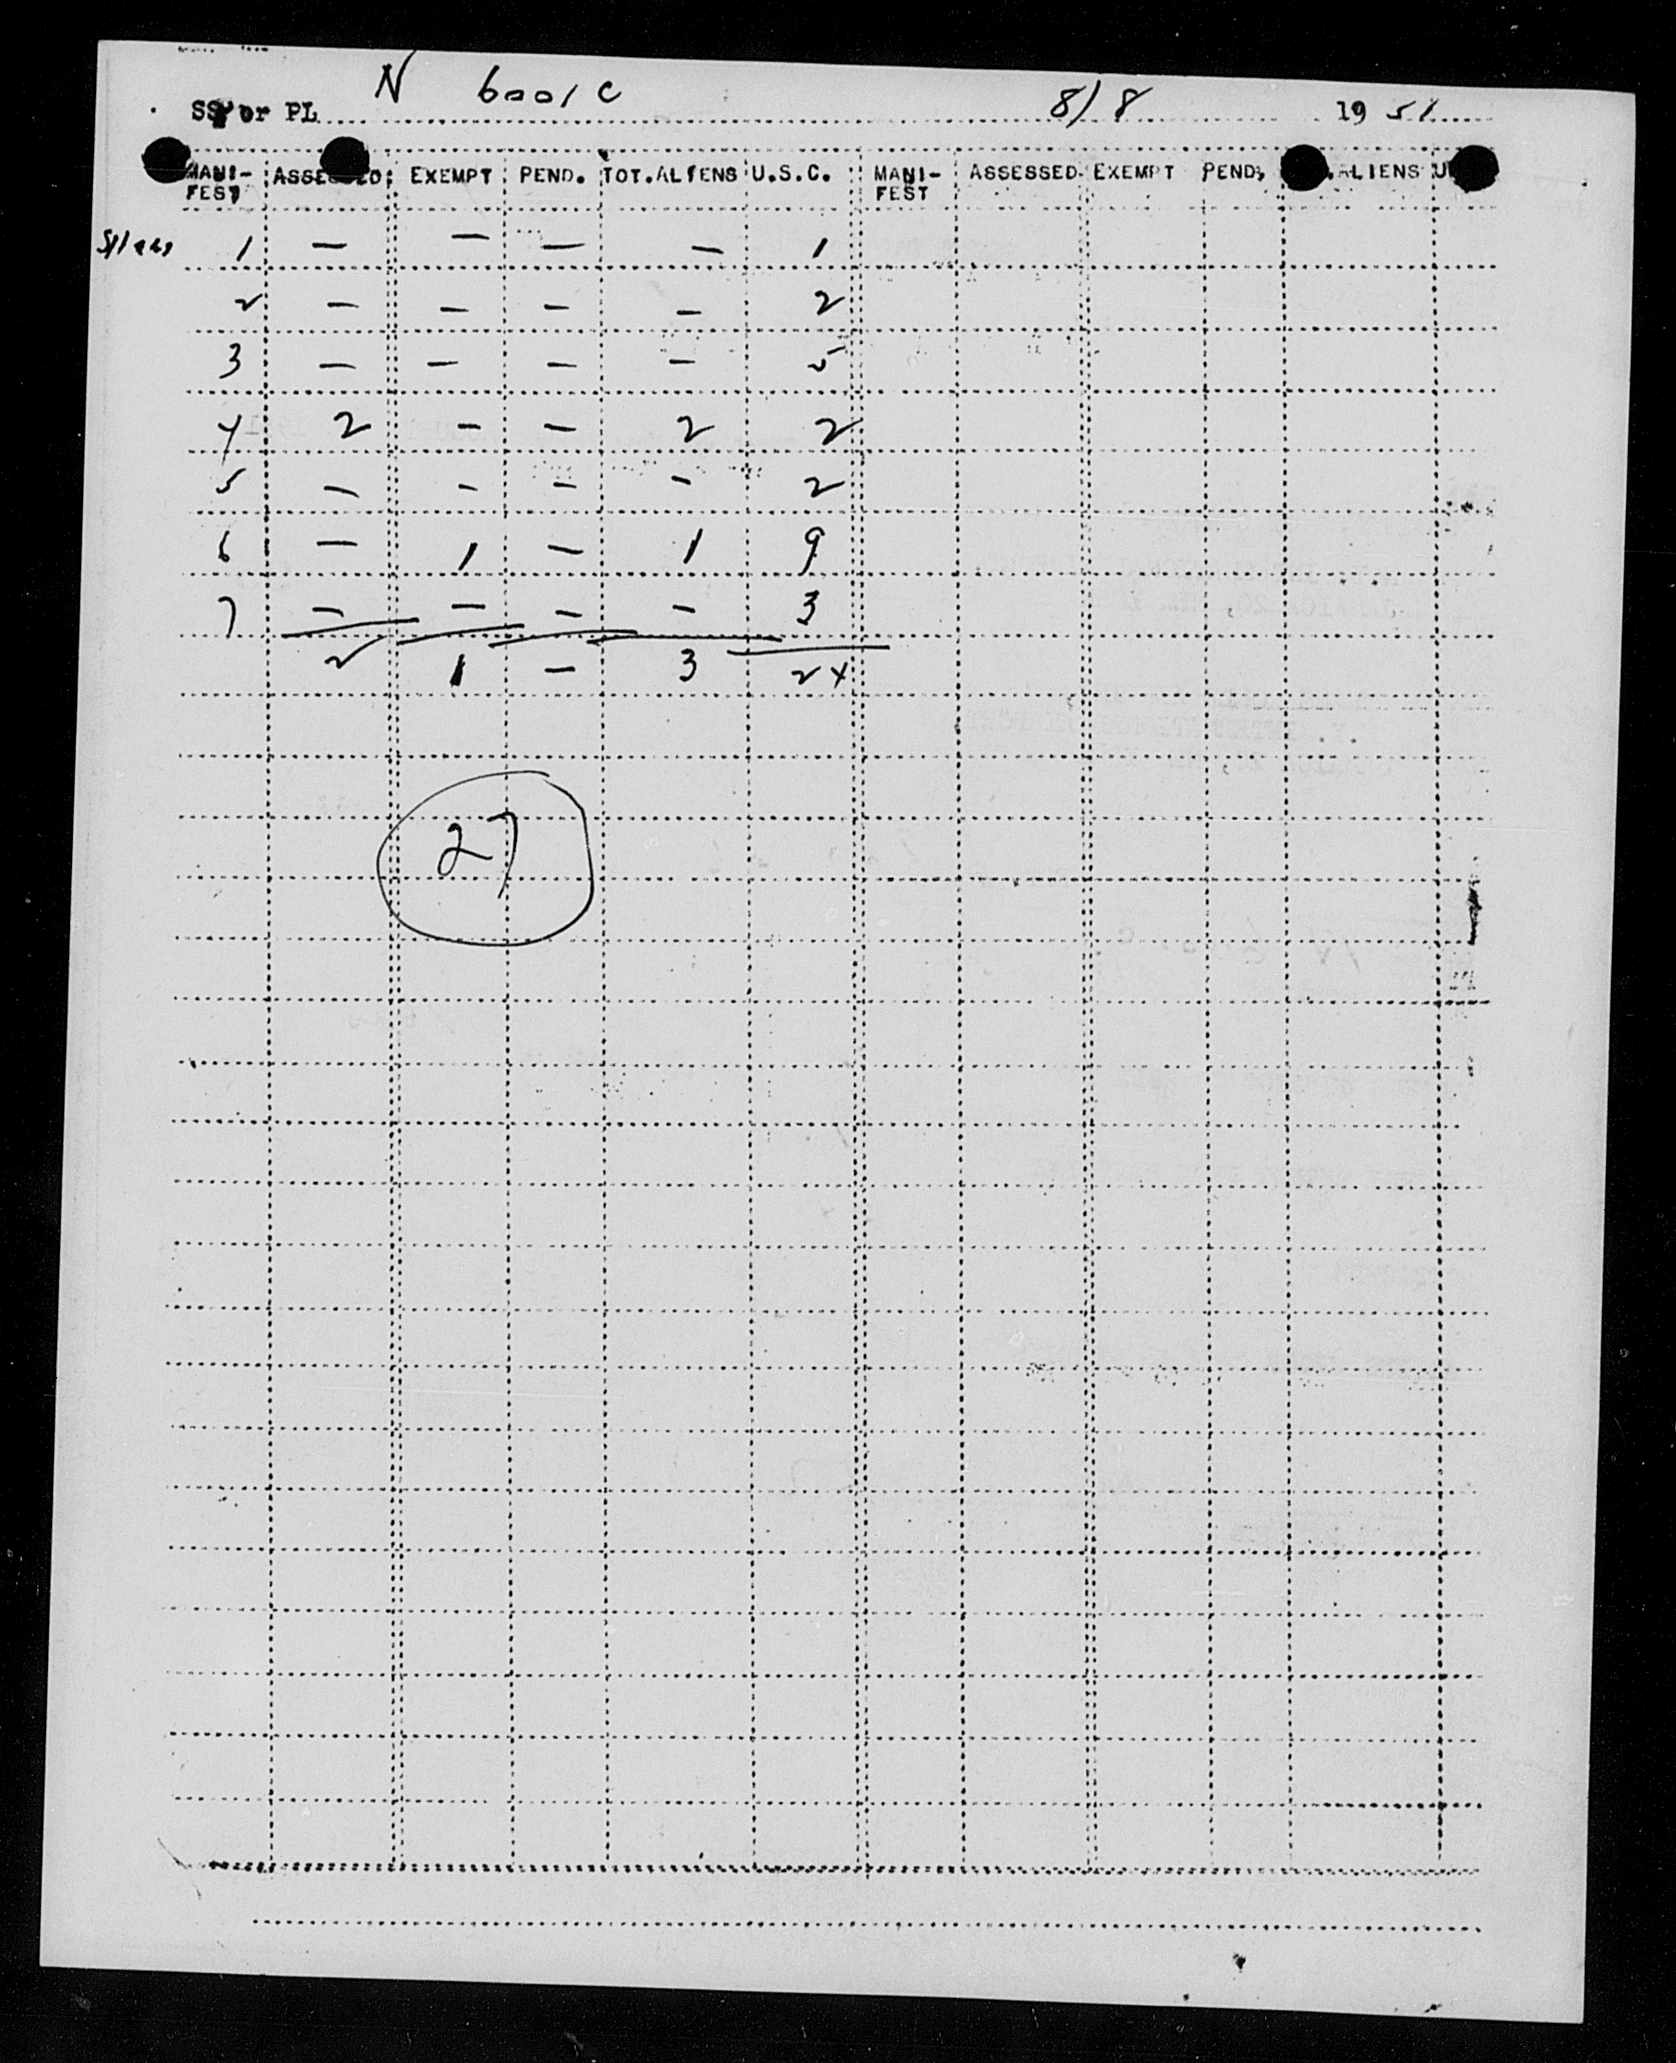 SS or PL N 6001C 8/8 1951
MANI-FEST ASSESSED EXEMPT PEND. TOT.ALIENS U.S.C. MANI-FEST ASSESSED EXEMPT PEND. ALIENS U
1 — — — — 1
2 — — — — 2
3 — — — — 5
4 2 — — 2 2
5 — — — — 2
6 — 1 — 1 9
7 — — — — 3
2 1 — 3 24
27